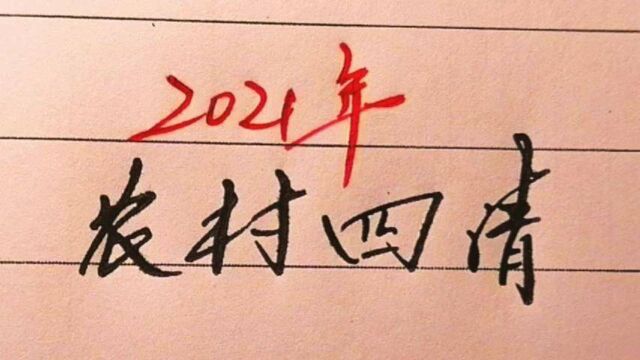 2021年
农村四清